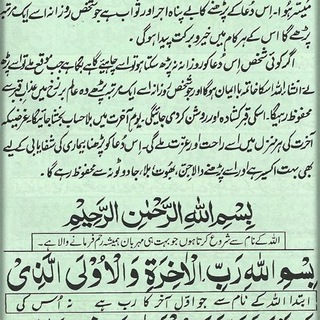 میسر ہوگا۔ اس دُعا کے پڑھنے کا بے پناہ اجر اور ثواب ہے جو شخص روزانہ اسے ایک مرتبہ
پڑھے گا اس کے ہر کام میں خیر و برکت پیدا ہوگی۔
اگر کوئی شخص اس کو روزانہ نہ پڑھ سکتا ہو تو اسے چاہیے گاہے بگاہے جب موقع ملے تو اسے پڑھ
لے انشاء اللہ اس کا خاتمہ باایمان ہوگا اور جو شخص روزانہ اسے ایک مرتبہ پڑھے وہ عالم برزخ میں عذاب قبر سے
محفوظ رہیگا۔ اسکی قبر کشادہ اور روشن کر دی جائیگی۔ یوم آخرت میں بلا حساب بخشا جائیگا غرضیکہ
آخرت کی ہر منزل میں اسے راحت اور عزت ملے گی۔ اس دُعا کو پڑھنا بیماری کی شفایابی کے لیے
بھی بہت اکسیر ہے اور اسے پڑھنے والا جن، بھوت بلا، جادو ٹونہ سے محفوظ رہے گا۔
بِسْمِ اللهِ الرَّحْمٰنِ الرَّحِيْمِ
اللہ کے نام سے شروع کرتا ہوں جو بہت ہی مہربان ہمیشہ رحم فرمانے والا ہے۔
بِسْمِ اللهِ رَبِّ الْاٰخِرَةِ وَالْاُوْلٰى الَّذِىْ
ابتدا اللہ کے نام سے جو اوّل آخر کا رب ہے نہ اُس کی